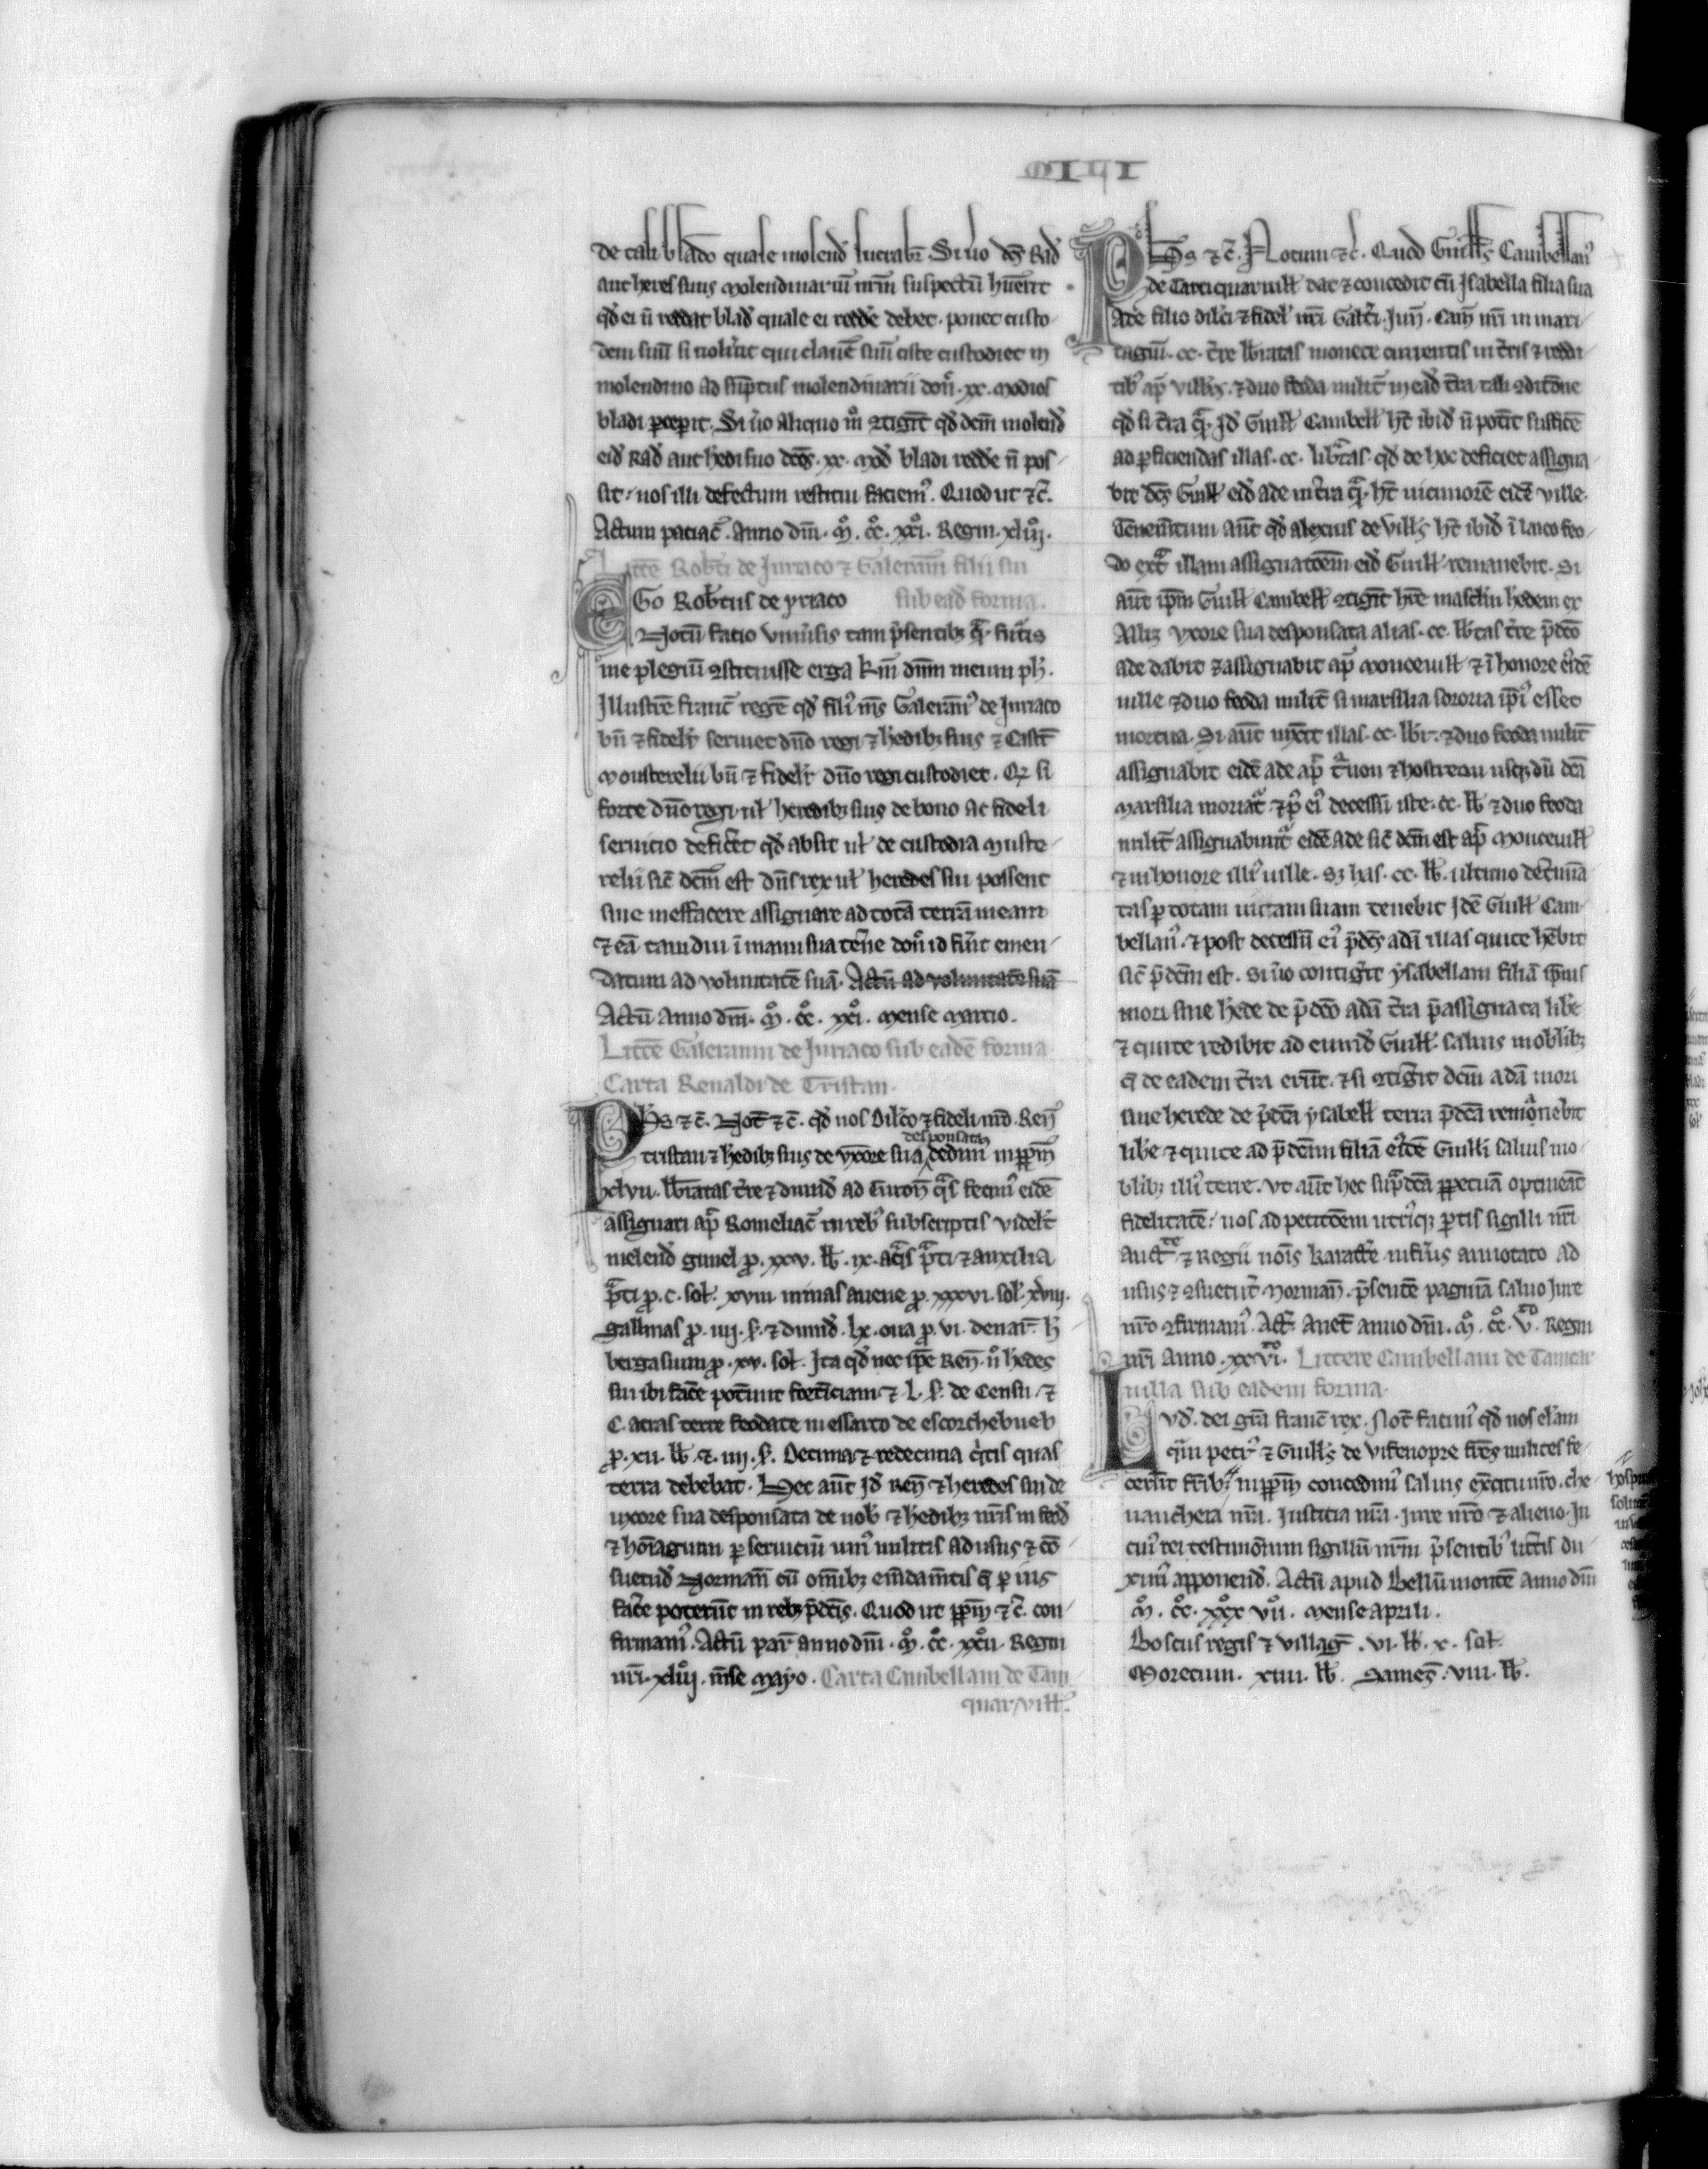 de tali blado quale molend̾ lucrabr̄. Si ũo dc̄s Rad̾
aut heres suus molendinariū nr̄m suspectū hūerit
qd̾ ei ñ reddat blad̾ quale ei redde̾ debet. ponet custo-
dem suū si uolũit qui clauē suā ciste custodiet in
molendino ad sūptus molendinarii don̾. xx. modios
bladi ꝑceꝑit. Si ũo aliquo mº ꝯtigit̄ qd̾ dcm̄ molend̾
eid̾ Rad̾ aut hedi suo dcōs. xx. mod̾ bladi redde̾ ñ pos-
sit: nos illi defectum restitui faciem᾽. Quod ut ⁊c̄.
Actum paciac̄. anno dm̄. mº. ccº. xxiº. Regni. xliiiº.
Litte̾ Rob̾ti de Iuriaco ⁊ Galeram̄ filii sui
EGo Rob̾tus de yriaco sub ead̾ forma.
Notū facio vniũsis tam p̄sentib; qͣ futis̾
me plegiū ꝯstituisse erga k̄m dnm̄ meum ph̾.
Illustrē franc̄ regē qd̾ fili᾽ ms̄ Galeran᾽ de Iuriaco
bñ ⁊ fidelr̾ seruiet dnō regi ⁊ hedib; suis ⁊ Castr̄
monsterelii bñ ⁊ fidelr̾ dnō regi custodiet. Qz si
forte dnō regi ul̾ heredib; suis de bono ac fideli
seruicio defic̾et qd̾ absit ul̾ de custodia muste-
relii sic̄ dcm̄ est dns̄ rex ul̾ heredes sui possent
sine meffacere assignare ad totā terrā meam
⁊ eā tam diu ī manu sua tene̾ don̾ id fũit emen-
datum ad voluntatē suā. Actū ad voluntatē suā
Actū anno dm̄. mº. ccº. xxiº. mense marcio.
Litte̾ Galeranni de Iuriaco sub eadē forma
Carta Renaldi de Tristan.
Phs̄ ⁊c̄. Not̄ ⁊c̄. qd̾ nos dilc̄o ⁊ fideli nr̄o. Ren᾽
desponsata
tristan ⁊ hedib; suis de vxore sua dedim᾽ inꝑꝑm̄
xlvii. lb̄ratas tre̾ ⁊ dimid̾ ad turon̄ qͣs fecim᾽ eidē
assignari apͩ Romeliac̄ in reb᾽ subscriptis videlt̾
melend̾ gunel ꝓ. xxv. lb̄. ix. acͣs pͣti ⁊ auxilia
pͣti ꝓ. c. sol̾. xviii minas auene ꝓ. xxxvi. sol̾. xviii.
gallinas ꝓ. iiij. s̾. ⁊ dimid̾. lx. oua ꝓ. vi. denar̄. h̾
bergasium ꝓ. xv. sol̾. Ita qd̾ nec ipē Ren̄. ñ hedes̾
sui ibi face̾ pot̾unt fort̾iciam ⁊ l. s̾. de Censu ⁊
C. acras terre feodate in essarto de escorchebueb
ꝓ. xii. lb̄ ⁊. iiij. s̾. Decima ⁊ redecima qͥtis quas
terra debebat. Hec aut̄ Id̾ Ren̄ ⁊ heredes sui de
uxore sua desponsata de nob̾ ⁊ hedib; nr̄is in feod̾
⁊ hom̄agium ꝑ seruiciū uni᾽ militis ad usus ⁊ cō-
suetud̾ Norman̄ cū om̄ib; emdam̄tis q̄ ꝑ ius
face̾ poterūt in reb; p̄dcīs. Quod ut ꝑꝑm̄ ⁊c̄. con-
firmam᾽. Actū par̄ anno dm̄. mº. ccº. xxiiº. Regni
nr̄i. xliiiº. mse̅ mayo. Carta Cambellani de Tan-
quaruill̾.
CIIII
Phs̄ ⁊c̄. Notum ⁊c̄. Quod Guill̾s Cambellan᾽
de Tanquaruill̾ dat ⁊ concedit cū Isabella filia sua
Ade filio dilc̄i ⁊ fidel᾽ nr̄i Galt̾i Iun̄. Cam̄ nr̄i in mari-
tagiū. cc. tre̾ lb̄ratas monete currentis in tr̾is ⁊ reddi-
tib᾽ apͩ villers. ⁊ duo feoda milit̄ in ead̾ tra̾ tali ꝯditōne
qd̾ si tra̾ qͣ. Id̾ Guill̾ Cambell̾ ht̄ ibid̾ ñ pot̾it suffice̾
ad ꝑficiendas illas. cc. librͣtas qd̾ de hoc deficiet assigna-
bit dc̄s Guill̾ eid̾ ade in tra̾ qͣ. ht̄ uicinorē eidē ville.
Tenem̄tum aut̄ qd̾ alexius de vill̾s ht̄ ibid̾ ī laico feo-
do extͣ illam assignatōem̄ eid̾ Guill̾ remanebit. Si
aut̄ ipm̄ Guill̾ Cambell̾ ꝯtigit̄ hre̾ masclm̄ hedem̾ ex
Aliqͣ vxore sua desponsata alias. cc. lb̄tas tre̾ p̄dcō
ade dabit ⁊ assignabit apͩ monceuill̾ ⁊ ī honore ei᾽dē
uille ⁊ duo feoda milit̄ si marsilia sororia ipi᾽ esset
mortua. Si aut̄ uixit̾ illas. cc. lb̄r̾. ⁊ duo feoda milit̄
assignabit eidē ade apͩ tͥuon ⁊ hostreiu usqz dū dcā
marsilia moriat̾ ⁊ p᾽ ei᾽ decessū iste. cc. lb̄ ⁊ duo feoda
milit̄ assignabunt̾ eidē ade sic̄ dcm̄ est apͩ monceuill̾
⁊ in honore illi᾽ uille. Sz has. cc. lb̄. ultimo det̾mīa-
tas ꝑ totam uitam suam tenebit Idē Guill̾ Cam-
bellan᾽. ⁊ post decessū ei᾽ p̄dcs̄ adā illas quite hebit̄
sic̄ p̄dcm̄ est. Si ũo contigit̾ ysabellam filiā ipīus
mori sine hede̾ de p̄dcō adā tra̾ p̄assignata libe̾
⁊ quite redibit ad eumd̾ Guill̾. saluis moblib;
q̄ de eadem tra̾ erūt. ⁊ si ꝯtigit̾ dcm̄ adā mori
sine herede de p̄dcā ysabell̾ terra p̄dcā remanebit
libe̾ ⁊ quite ad p̄dcām filiā ei᾽dē Guill̾i saluis mo-
blib; illi᾽ terre. Vt aut̄ hec supͣdcā ꝑpetuā optineāt
fidelitatē: nos ad petitōem̄ utriqz ꝑtis sigilli nr̄i
auctͭᵉ ⁊ Regii noīs karacte̾ infi᾽us annotato ad
usus ⁊ ꝯsuetut̾ Norman̄. p̄sentē paginā saluo Iure
nr̄o ꝯfirmam᾽. Act̄. Anet̄ anno dm̄. mº. ccº. vº. Regni
nr̄i Anno. xxviº. Littere Cambellani de Tancar-
uilla sub eadem forma.
LVD̾. dei grā franc̄ rex. Not̄ facim᾽ qd̾ nos elam̄
qm̄ petr᾽ ⁊ Guill̾s de vifenopre frēs milites fe-
cerūt frīb; inꝑꝑm̄ concedim᾽ saluis exc̄itu nr̄o. che-
uaucheia nr̄a. Iusticia nr̄a. Iure nr̄o ⁊ alieno. In
cui᾽ rei testimōium sigillū nr̄m p̄sentib᾽ litt̾is du-
xim᾽ apponend̾. Actū apud Bellūmontē anno dm̄
mº. ccº. xxxº viiº. mense aprili.
Boscus regis ⁊ villag̾. vi. lb̄. x. sol̾.
Moretum. xiiii. lb̄. Sames̄. viii. lb̄.